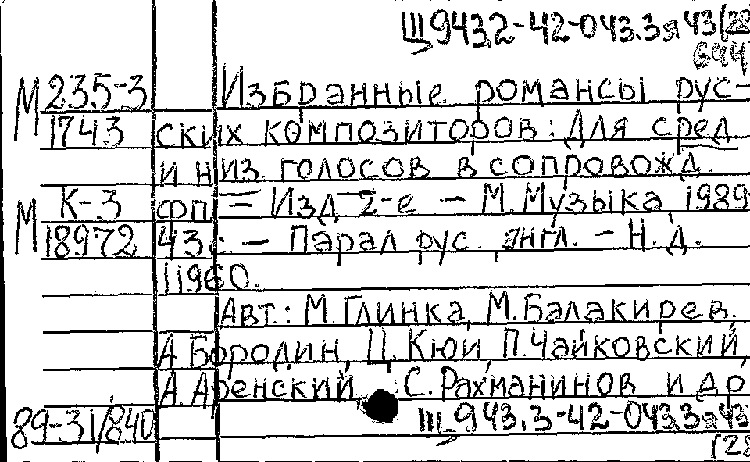 Щ943.2-42-043.3я43(28
644
М 235-3 Избранные романсы рус-
1743 ских композиторов: Для сред
и низ. голосов в сопровожд.
М К-3 фп. – Изд 2-е – М. Музыка, 1989
18972 43с – Парал рус. англ. – Н. д.
11960.
Авт.: М. Глинка, М. Балакирев,
А Бородин, Ц. Кюи, П. Чайковский,
А. Аренский, С. Рахманинов и др
89-31/840 Щ 943.3-42-043.3я43
(28